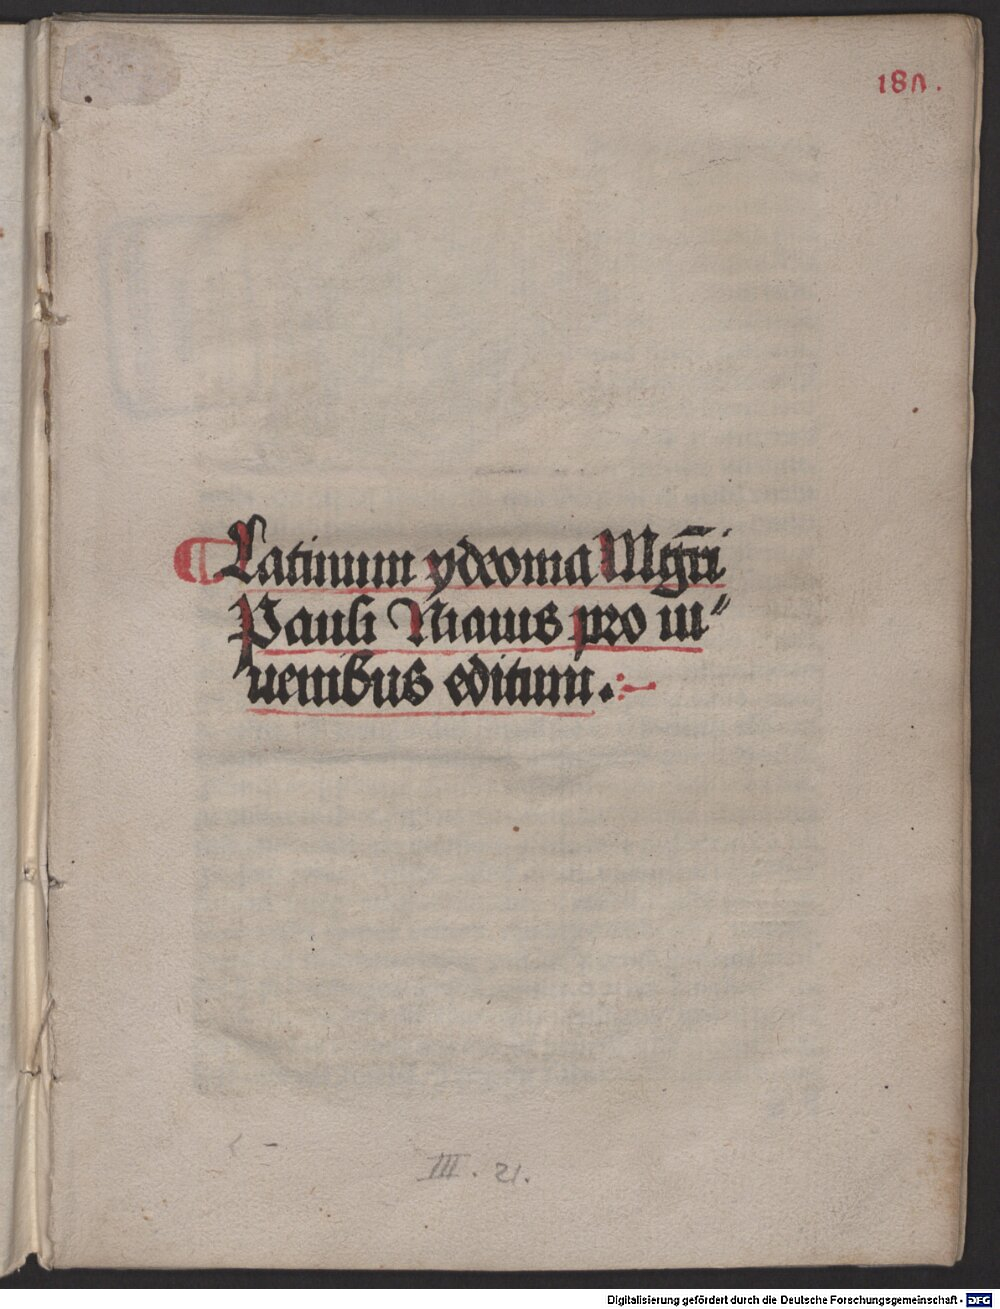 187.
Latinum ydeoma Mgr̄i
Pauli Niauis pro iu⸗
uenibus editum.
III. 21.
Digitalisierung gefördert durch die Deutsche Forschungsgemeinschaft - DFG